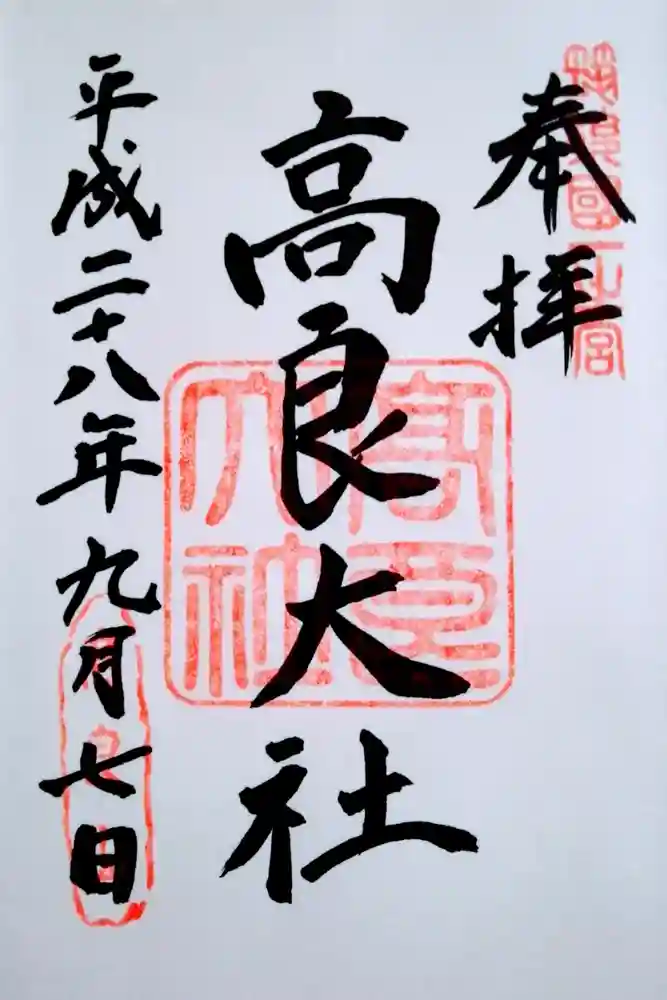 筑後國一之宮
奉拝
高良大社
高良大社
平成二十八年九月七日